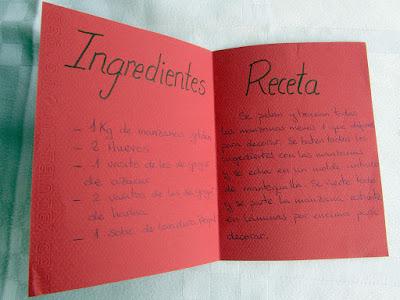 Ingredientes
- 1 Kg de manzanas golden
- 2 Huevos
- 1 vasito de los de yogur
de azúcar
- 2 vasitos de los de yogur
de harina
- 1 sobre de levadura Royal
Receta
Se pelan y trocean todas
las manzanas menos 1 que dejamos
para decorar. Se baten todos los
ingredientes con las manzanas
y se echa en un molde untado
de mantequilla. Se vierte todo
y se parte la manzana restante
en láminas por encima para
decorar.